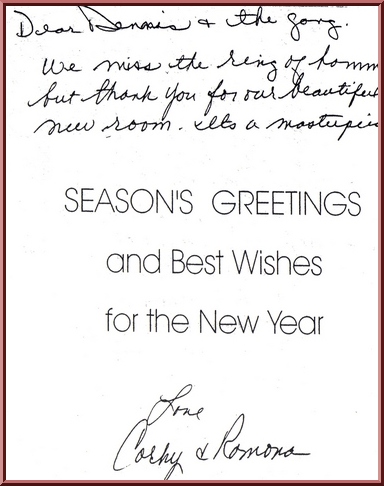 Dear Dennis & the gang.
We miss the ring of
but thank you for our beautiful
new room. Its a
SEASON'S GREETINGS
and Best Wishes
for the New Year
Love
Corky & Romona